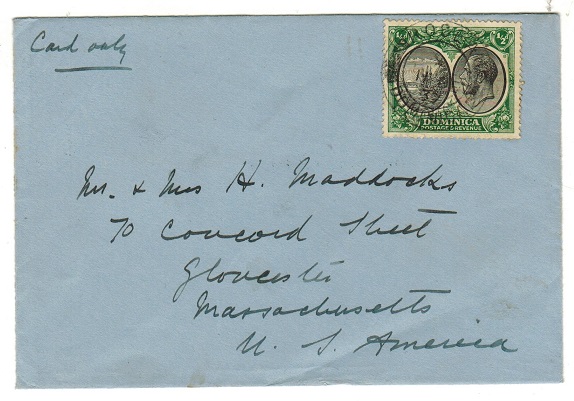 Card only
½d ½d
DOMINICA
POSTAGE & REVENUE
Mr. & Mrs H. Maddocks
70 Concord Street
Gloucester
Massachusetts
U. S. America